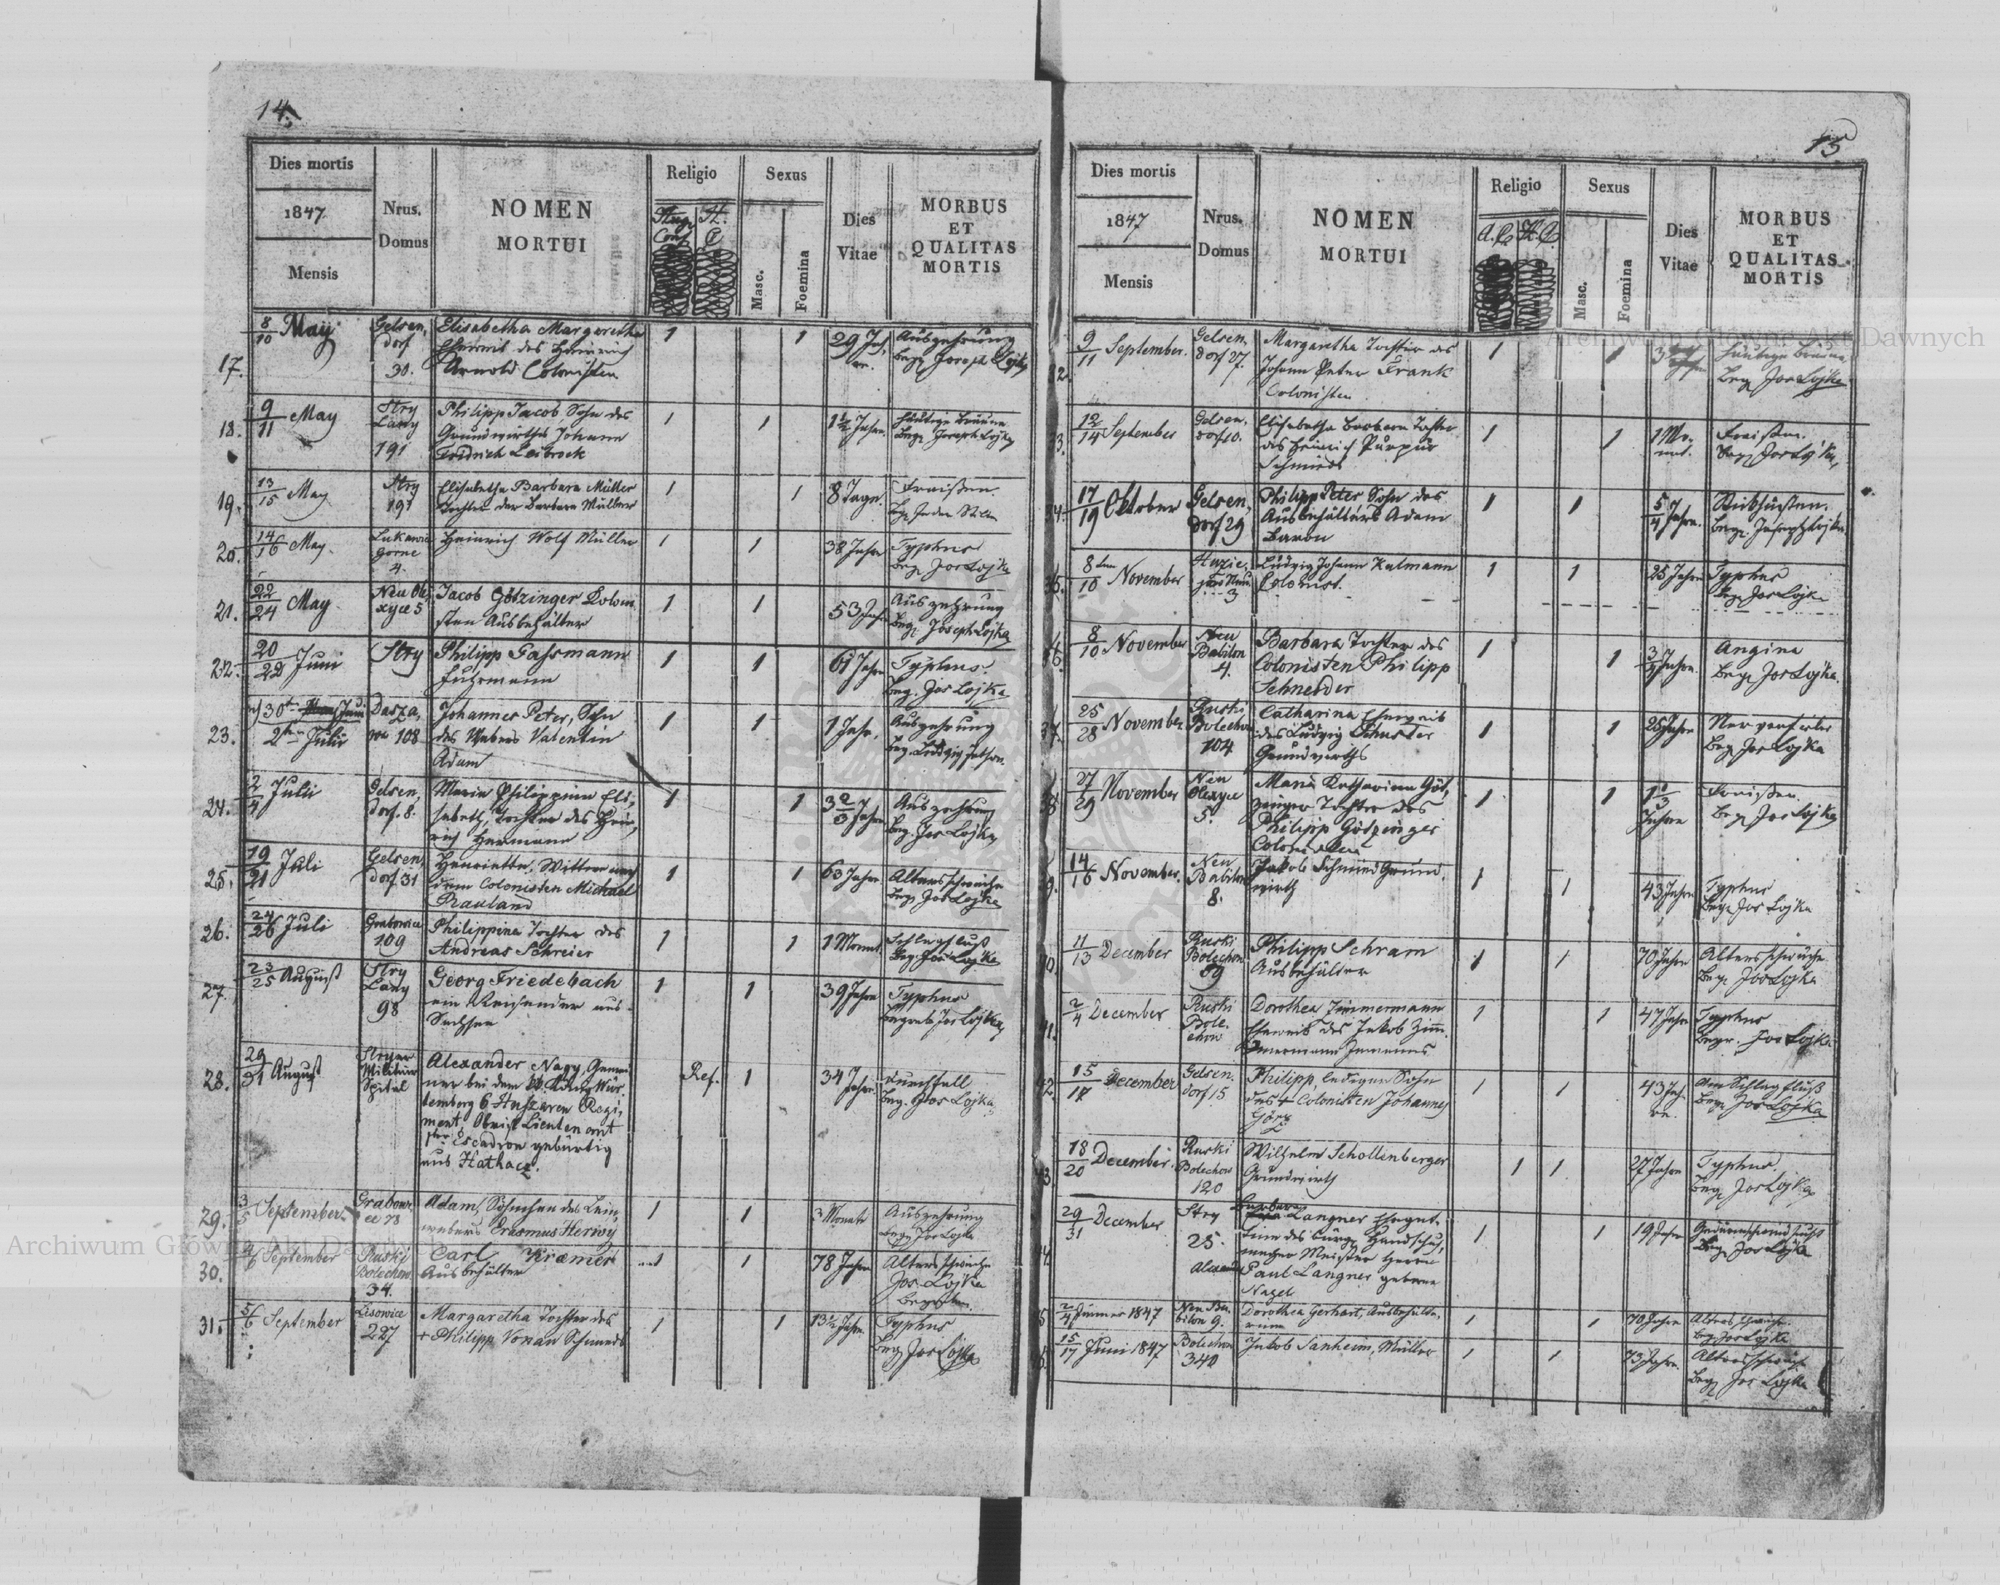 14.
Dies mortis
1847
Mensis
Nrus.
Domus
NOMEN
MORTUI
Religio
Augs. Conf.
H. C.
Sexus
Masc.
Foemina
Dies
Vitae
MORBUS
ET
QUALITAS
MORTIS
17.
8/10 May
Gelsen,
dorf
30.
Elisabetha Margaretha
Eheweib des Heinrich
Arnold Colonisten
1
1
29 Jah,
re.
Auszehrung
Begr. Joseph Lojka
18.
9/11 May
Stry
Lany
191
Philipp Jacob Sohn des
Grundwirths Johann
Fridrich Leibrock
1
1
1 1/2 Jahre.
häutige Bräune
Begr. Joseph Lojka
19.
13/15 May
Stry
191
Elisabetha Barbara Müller
Tochter der Barbara Müller
1
1
8 Tage.
Fraißen.
20.
14/16 May.
Lukawica
Gorne
4.
Heinrich Wolf Müller
1
1
38 Jahre
Typhus
Begr. Jos Lojka
21.
22/24 May
Neu Ole
xyce 5
Jacob Götzinger Colon
sten Ausbehälter
1
1
53 Jahr
Auszehrung
Begr. Joseph Lojka
22.
20/22 Juni
Stry
Philipp Fassmann
Fuhrmann
1
1
61 Jahre
Typhus.
Begr. Jos Lojka
23.
30ten Juni
2ten Julii
Dasza,
wa 108
Johannes Peter, Sohn
des Webers Valentin
Adam
1
1
1 Jahr.
Auszehrung
24.
2/4 Julii
Gelsen,
dorf. 8.
Maria Philippina Eli,
sabeth, Tochter des Hein,
rich Hermann
1
1
3 2/3 Jahre
Auszehrung
Begr. Jos Lojka
25.
19/21 Juli
Gelsen,
dorf 31
Henriette, Wittwe nach
dem Colonisten Michael
Prauland
1
1
63 Jahre.
Altersschwäche
Begr. Jos Lojka
26.
24/26 Juli
Grabowice
109
Philippina Tochter des
Andreas Schreier
1
1
1 Monat.
Schlagfluß
Begr. Jos Lojka
27.
23/25 August
Stry
Lany
98
Georg Friedebach
ein Reisender aus
Sachsen
1
1
39 Jahre
Typhus
Begrab Jos Lojka
28.
29/31 August
Stryer
Militair
Spital
Alexander Nagy, Gemei
ner bei dem König Wür
temberg 6 Huszaren Regi,
ment Obrist Lieutenant
1ter Escadron gebürtig
aus Hathacz.
Ref.
1
34 Jahre.
Durchfall
Begr. Jos Lojka
29.
3/5 September.
Grabowi
ce 73
Adam, Söhnchen des Lein,
webers Erasmus Herwy
1
1
3 Monate
Auszehrung
Begr. Jos Lojka
30.
4/6 September
Ruski
Bolechow
34.
Carl Kraemer
Ausbehälter
1
1
78 Jahre
Altersschwäche
Jos Lojka
31.
5/6 September
Lisowice
227
Margaretha Tochter des
+ Philipp Vonan Schmieds
1
1
13 1/2 Jahre.
Typhus
Begr. Jos Lojka
15
Dies mortis
1847
Mensis
Nrus.
Domus
NOMEN
MORTUI
Religio
A. C.
H. C.
Sexus
Masc.
Foemina
Dies
Vitae
MORBUS
ET
QUALITAS
MORTIS
9/11 September.
Gelsen,
dorf 27.
Margaretha Tochter des
Johann Peter Frank
Colonisten
1
1
häutige Bräune
Begr. Jos Lojka
12/14 September
Gelsen,
dorf 10.
Elisabetha Barbara Tochter
des Heinrich Purpur
Schmieds
1
1
1 Mo,
nat.
Fraißen.
Begr. Jos Lojka
17/19 Oktober
Gelsen,
dorf 29
Philipp Peter Sohn des
Ausbehälters Adam
Baron
1
1
5/4 Jahre.
Begr. Joseph Lojka
8ten/10 November
3
Ludwig Johann Kulmann
Colonist.
1
1
25 Jahre
Typhus
Begr. Jos Lojka
8/10 November
Neu
Babilon
4.
Barbara Tochter des
Colonisten Philipp
Schneider
1
1
3/4 Jahre.
Angina
Begr. Jos Lojka.
25/28 November
Ruski
Bolechow
104
Catharina Eheweib
des Ludwig Schuster
Grundwirths
1
1
25 Jahre
Nervenfieber
Begr. Jos Lojka
27/29 November
Neu
Olexyce
5.
Maria Katharina Göt,
zinger Tochter des
Philipp Götzinger
Colonisten
1
1
1 1/3
Jahre
Fraißen.
Begr. Jos Lojka
14/16 November.
Neu
Babilon
8.
Jakob Schmied Grund,
wirth
1
1
43 Jahre
Typhus
Begr. Jos Lojka
11/13 December
Ruski
Bolechow
59
Philipp Schram
Ausbehälter
1
1
70 Jahre
Altersschwäche
Begr. Jos Lojka
2/4 December
Ruski
Bole,
chow
Dorothea Zimmermann
Eheweib des Jakob Zim
mermann
1
1
47 Jahre
Typhus
Begr. Jos Lojka
15/17 December
Gelsen,
dorf 15
Philipp, ledigen Sohn
des + Colonisten Johannes
Görz
1
1
43 Jah,
re.
Am Schlagfluß
Begr. Jos Lojka
18/20 December.
Ruski
Bolechow
120
Wilhelm Schollenberger
Grundwirth
1
1
27 Jahre
Typhus.
Begr. Jos Lojka
29/31 December
Stry
25.
Barbara
Langner Ehegat,
tinn des bürg. Handschuh,
macher Meister Herrn
Paul Langner geborne
Nagel
1
1
19 Jahre
Begr. Jos Lojka
2/4 Jänner 1847
Neu Ba,
bilon 9.
Dorothea Gerhart, Ausbehälte,
rinn
1
1
70 Jahre
Altersschwäche.
Begr. Jos Lojka
15/17 Juni 1847
Bolechow
340
Jakob Sanheim, Müller
1
1
73 Jahre.
Altersschwäche
Begr. Jos Lojka
Archiwum Główne Akt Dawnych
Archiwum Główne Akt Dawnych